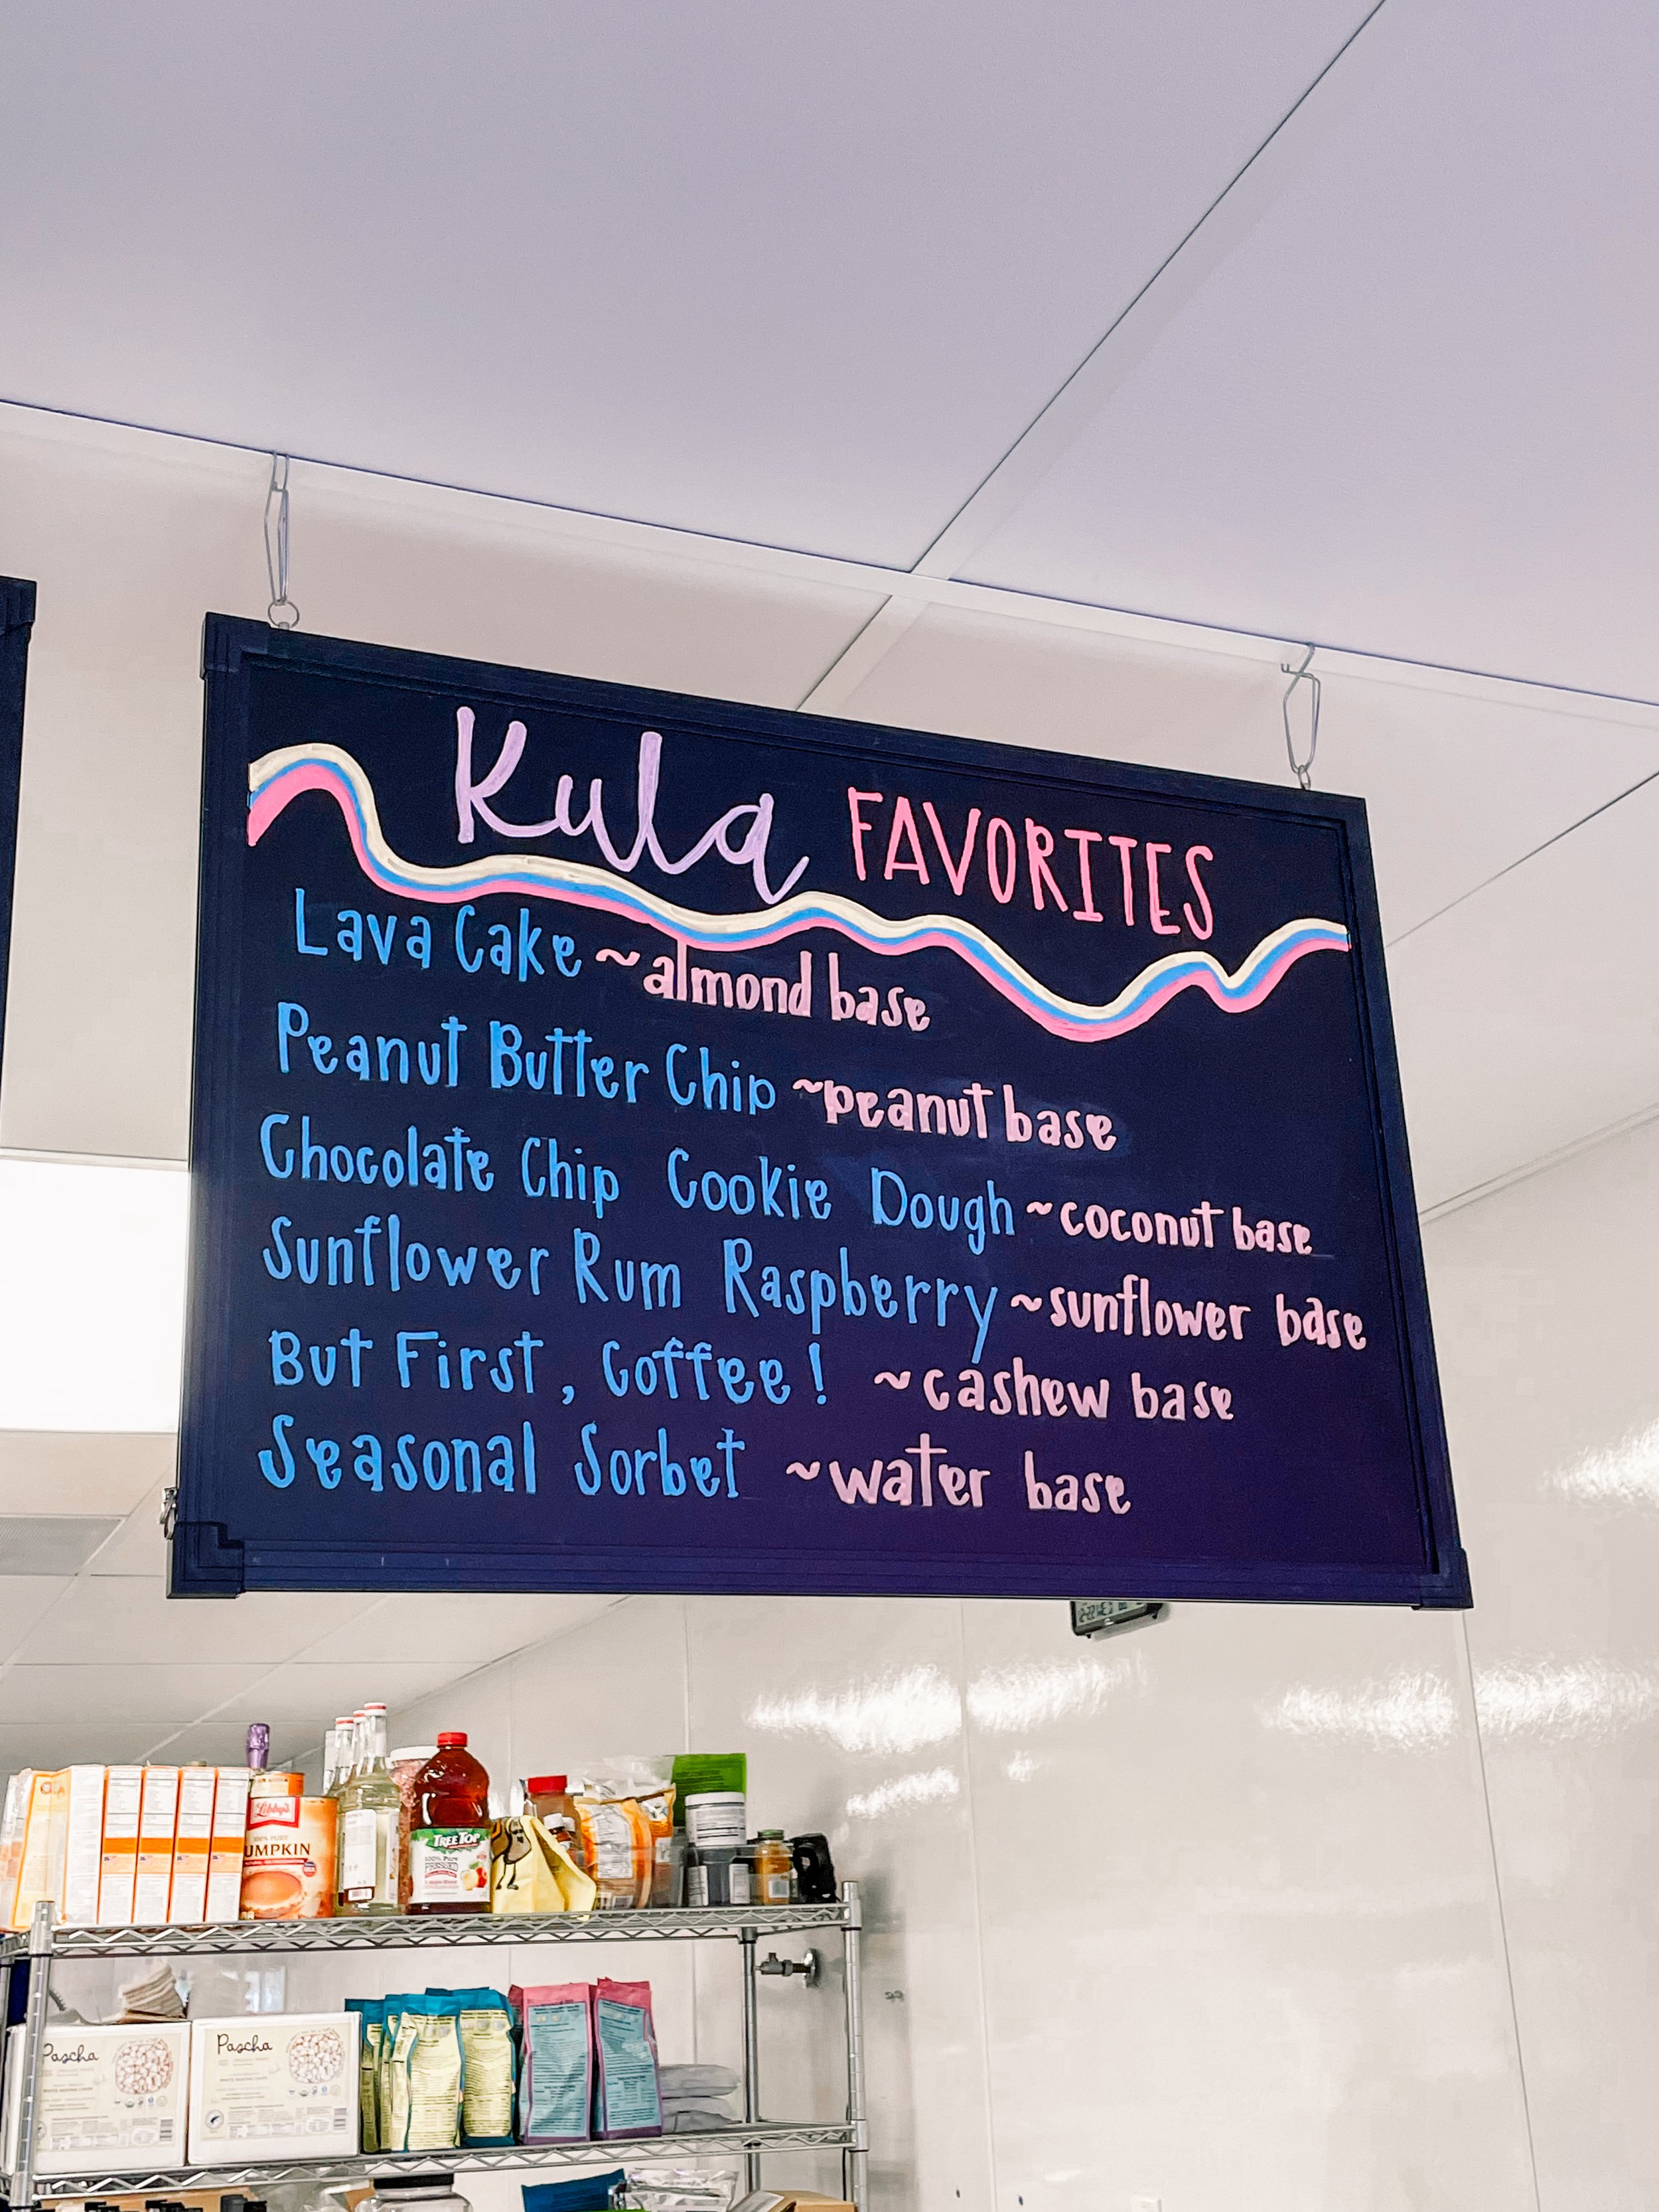 Kula FAVORITES
Lava Cake ~almond base
Peanut Butter Chip ~peanut base
Chocolate Chip Cookie Dough ~coconut base
Sunflower Rum Raspberry ~sunflower base
But First, Coffee! ~cashew base
Seasonal Sorbet ~water base
Libby's
100% PURE
PUMPKIN
TREE TOP
100% PURE
PRESSED
Pascha
Pascha